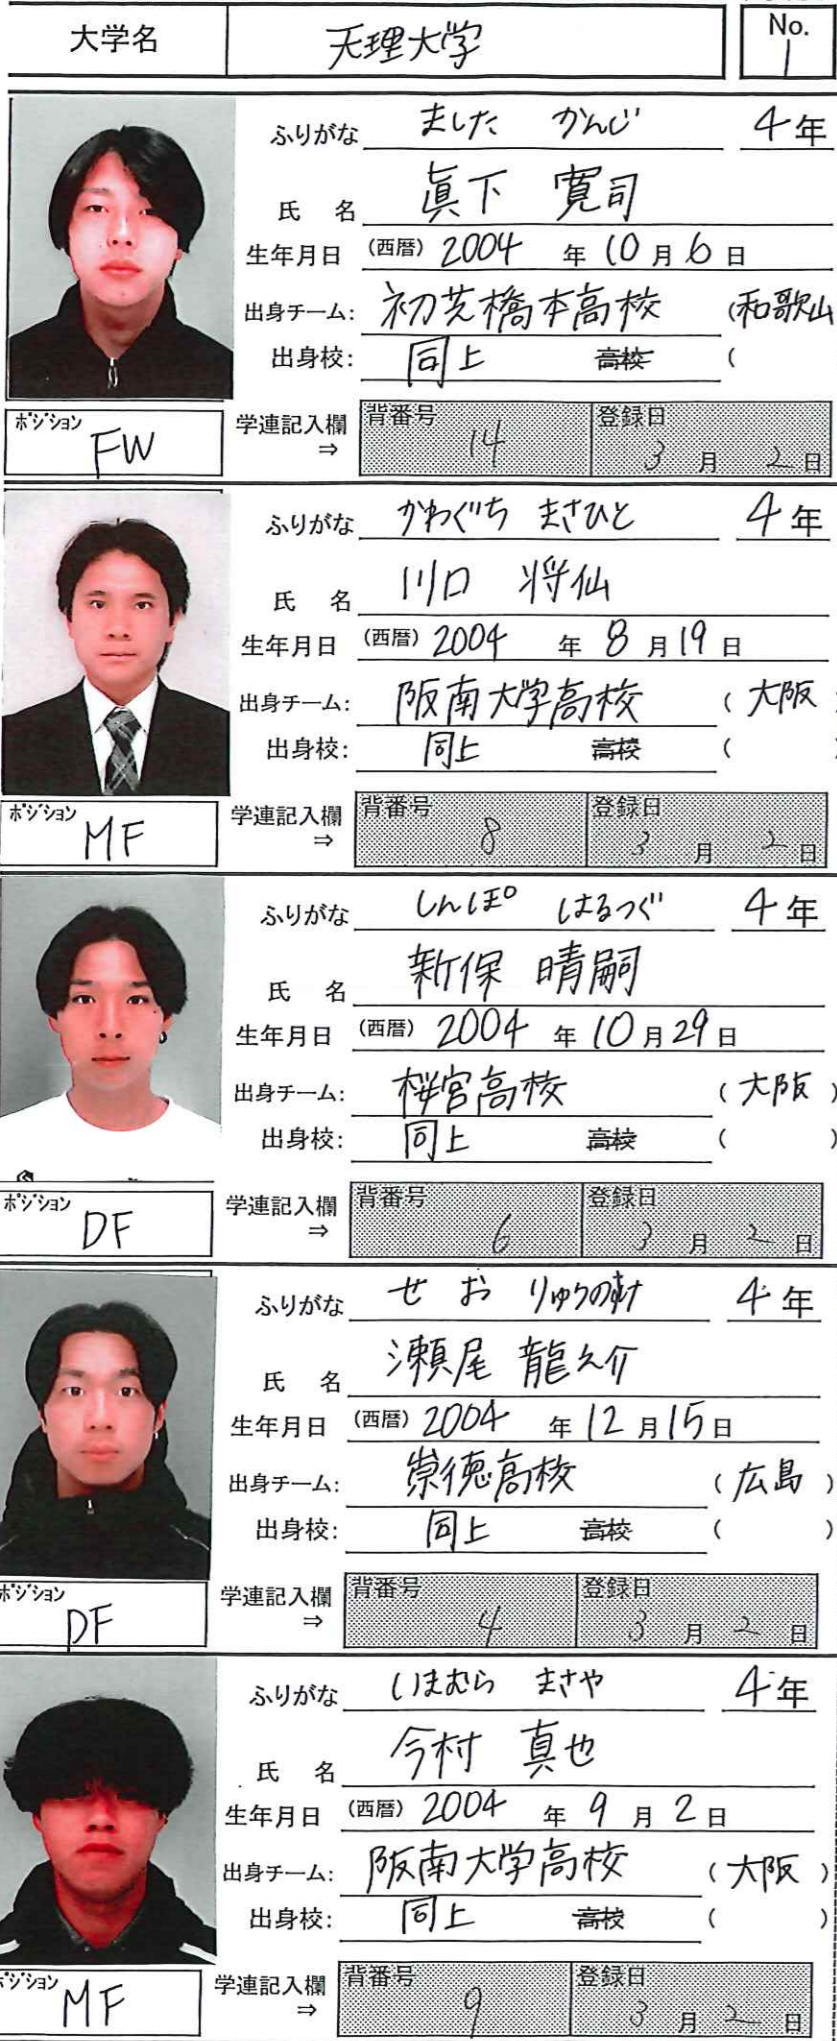 大学名 天理大学 No. 1
ふりがな ました かんじ 4年
氏 名 眞下 寛司
生年月日 (西暦) 2004 年 10 月 6 日
出身チーム: 初芝橋本高校 (和歌山
出身校: 同上 高校 (
ポジション FW 学連記入欄 ⇒ 背番号 14 登録日 3 月 2 日
ふりがな かわぐち まさひと 4年
氏 名 川口 将仙
生年月日 (西暦) 2004 年 8 月 19 日
出身チーム: 阪南大学高校 ( 大阪 )
出身校: 同上 高校 ( )
ポジション MF 学連記入欄 ⇒ 背番号 8 登録日 3 月 2 日
ふりがな しんぽ はるつぐ 4年
氏 名 新保 晴嗣
生年月日 (西暦) 2004 年 10 月 29 日
出身チーム: 桜宮高校 ( 大阪 )
出身校: 同上 高校 ( )
ポジション DF 学連記入欄 ⇒ 背番号 6 登録日 3 月 2 日
ふりがな せお りゅうのすけ 4年
氏 名 瀬尾 龍之介
生年月日 (西暦) 2004 年 12 月 15 日
出身チーム: 崇徳高校 ( 広島 )
出身校: 同上 高校 ( )
ポジション DF 学連記入欄 ⇒ 背番号 4 登録日 3 月 2 日
ふりがな いまむら まさや 4年
氏 名 今村 真也
生年月日 (西暦) 2004 年 9 月 2 日
出身チーム: 阪南大学高校 ( 大阪 )
出身校: 同上 高校 ( )
ポジション MF 学連記入欄 ⇒ 背番号 9 登録日 3 月 2 日